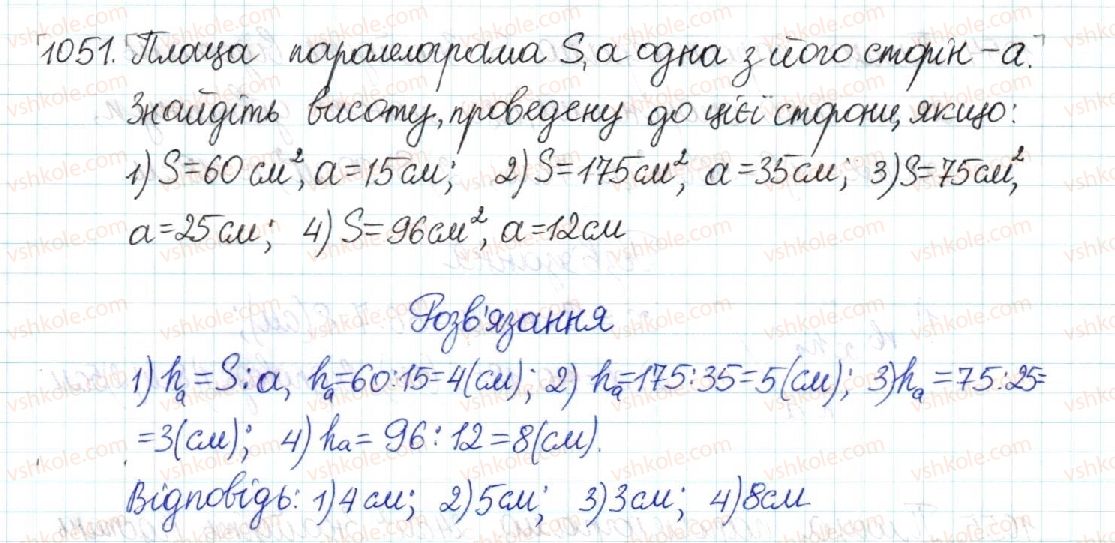 1051. Площа паралелограма S, а одна з його сторін – a.
Знайдіть висоту, проведену до цієї сторони, якщо:
1) S=60 см², a=15 см; 2) S=175 см², a=35 см; 3) S=75 см²,
a=25 см; 4) S=96 см², a=12 см
Розв'язання
1) hₐ=S:a, hₐ=60:15=4(см); 2) hₐ=175:35=5(см); 3) hₐ=75:25=
=3(см); 4) hₐ=96:12=8(см).
Відповідь: 1) 4 см; 2) 5 см; 3) 3 см; 4) 8 см